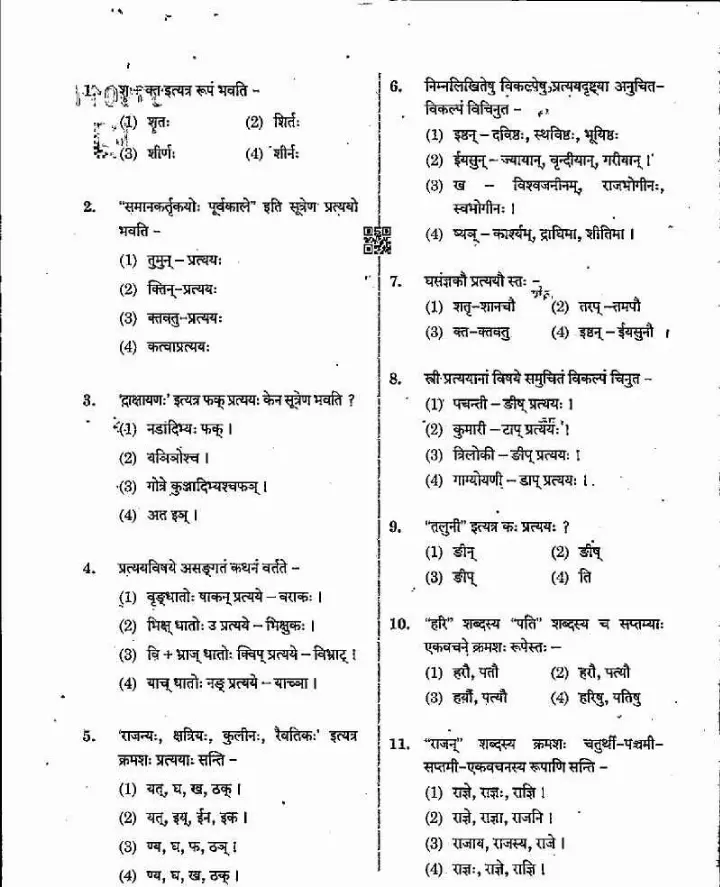 1. शृ - क्त इत्यत्र रूपं भवति -
(1) शृतः (2) शिर्तः
(3) शीर्णः (4) शीर्नः
2. "समानकर्तृकयोः पूर्वकाले" इति सूत्रेण प्रत्ययो
भवति -
(1) तुमुन् - प्रत्ययः
(2) क्तिन्-प्रत्ययः
(3) क्तवतु-प्रत्ययः
(4) कत्वाप्रत्ययः
3. 'द्राक्षायणः' इत्यत्र फक् प्रत्ययः केन सूत्रेण भवति ?
(1) नडादिभ्यः फक् ।
(2) यञिञोश्च ।
(3) गोत्रे कुञ्जादिभ्यश्चफञ् ।
(4) अत इञ् ।
4. प्रत्ययविषये असङ्गतं कथनं वर्तते -
(1) वृङ्धातोः षाकन् प्रत्यये - वराकः ।
(2) भिक्ष् धातोः उ प्रत्यये - भिक्षुकः ।
(3) वि + भ्राज् धातोः क्विप् प्रत्यये - विभ्राट् ।
(4) याच् धातोः नङ् प्रत्यये - याच्ञा ।
5. 'राजन्यः, क्षत्रियः, कुलीनः, रैवतिकः' इत्यत्र
क्रमशः प्रत्ययाः सन्ति -
(1) यत्, घ, ख, ठक् ।
(2) यत्, इय्, ईन, इक ।
(3) ण्य, घ, फ, ठञ् ।
(4) ण्य, घ, ख, ठक् ।
6. निम्नलिखितेषु विकल्पेषु प्रत्ययदृष्ट्या अनुचित-
विकल्पं विचिनुत -
(1) इष्ठन् - दविष्ठः, स्थविष्ठः, भूयिष्ठः
(2) ईयसुन् - ज्यायान्, वृन्दीयान्, गरीयान् ।
(3) ख - विश्वजनीनम्, राजभोगीनः,
स्वभोगीनः ।
(4) ष्यञ् - कार्श्यम्, द्राघिमा, शीतिमा ।
7. घसंज्ञकौ प्रत्ययौ स्तः -
(1) शतृ-शानचौ (2) तरप् -तमपौ
(3) क्त-क्तवतु (4) इष्ठन् - ईयसुनौ ।
8. स्त्री प्रत्ययानां विषये समुचितं विकल्पं चिनुत -
(1) पचन्ती - ङीष् प्रत्ययः ।
(2) कुमारी - टाप् प्रत्ययः ।
(3) त्रिलोकी - ङीप् प्रत्ययः ।
(4) गाग्योयणी - डाप् प्रत्ययः ।
9. "तलुनी" इत्यत्र कः प्रत्ययः ?
(1) ङीन् (2) ङीष्
(3) ङीप् (4) ति
10. "हरि" शब्दस्य "पति" शब्दस्य च सप्तम्याः
एकवचने क्रमशः रूपेस्तः -
(1) हरौ, पतौ (2) हरौ, पत्यौ
(3) हर्यौ, पत्यौ (4) हरिषु, पतिषु
11. "राजन्" शब्दस्य क्रमशः चतुर्थी-पञ्चमी-
सप्तमी-एकवचनस्य रूपाणि सन्ति -
(1) राज्ञे, राज्ञः, राज्ञि ।
(2) राज्ञे, राज्ञा, राजनि ।
(3) राजाय, राजस्य, राजे ।
(4) राज्ञः, राज्ञे, राज्ञि ।